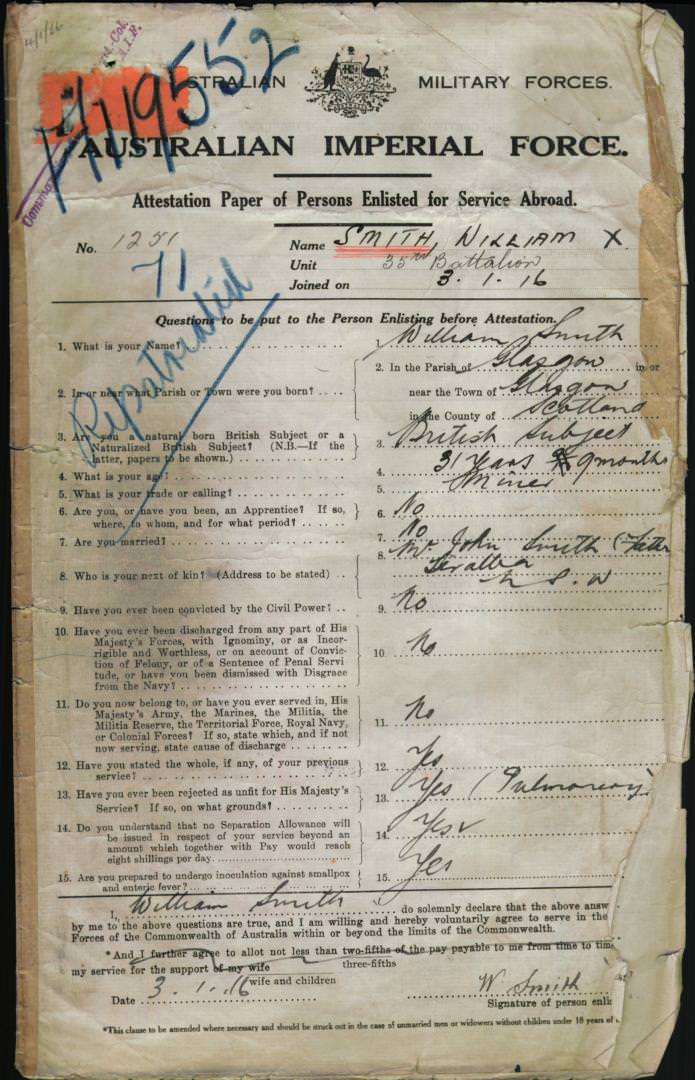 #119552
AUSTRALIAN MILITARY FORCES.
AUSTRALIAN IMPERIAL FORCE.
Attestation Paper of Persons Enlisted for Service Abroad.
No. 1251 Name SMITH, WILLIAM X
71 Unit 35th Battalion
Joined on 3.1.16
Questions to be put to the Person Enlisting before Attestation.
1. What is your Name? 1. William Smith
2. In or near what Parish or Town were you born? 2. In the Parish of Glasgow in or
near the Town of Glasgow
in the County of Scotland
3. Are you a natural born British Subject or a 3. British Subject
Naturalized British Subject? (N.B.—If the
latter, papers to be shown.)
4. What is your age? 4. 31 Years 9 months
5. What is your trade or calling? 5. Miner
6. Are you, or have you been, an Apprentice? If so, 6. No
where, to whom, and for what period?
7. Are you married? 7. No
8. Who is your next of kin? (Address to be stated) 8. Mr John Smith (Father
N S. W
9. Have you ever been convicted by the Civil Power? 9. No
10. Have you ever been discharged from any part of His 10. No
Majesty's Forces, with Ignominy, or as Incor-
rigible and Worthless, or on account of Convic-
tion of Felony, or of a Sentence of Penal Servi
tude, or have you been dismissed with Disgrace
from the Navy?
11. Do you now belong to, or have you ever served in, His 11. No
Majesty's Army, the Marines, the Militia, the
Militia Reserve, the Territorial Force, Royal Navy,
or Colonial Forces? If so, state which, and if not
now serving, state cause of discharge
12. Have you stated the whole, if any, of your previous 12. Yes
service?
13. Have you ever been rejected as unfit for His Majesty's 13. Yes (Pulmonary)
Service? If so, on what grounds?
14. Do you understand that no Separation Allowance 14. Yes
will be issued in respect of your service beyond an
amount which together with Pay would reach
eight shillings per day.
15. Are you prepared to undergo inoculation against smallpox 15. Yes
and enteric fever?
I, William Smith do solemnly declare that the above answ
by me to the above questions are true, and I am willing and hereby voluntarily agree to serve in the
Forces of the Commonwealth of Australia within or beyond the limits of the Commonwealth.
*And I further agree to allot not less than two-fifths of the pay payable to me from time to time
three-fifths
my service for the support of my wife
wife and children
Date 3.1.16 W Smith
Signature of person enlis
*This clause to be amended where necessary and should be struck out in the case of unmarried men or widowers without children under 18 years of